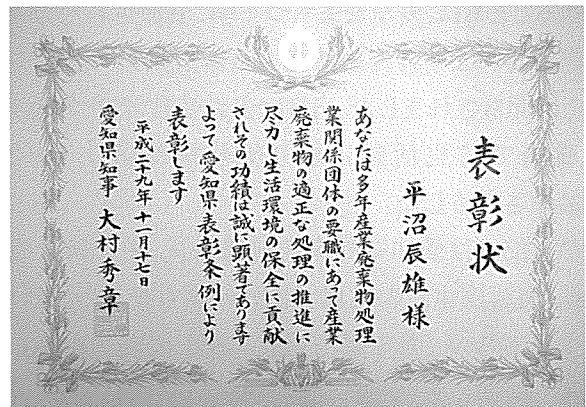 表彰状
平沼辰雄様
あなたは多年産業廃棄物処理
業関係団体の要職にあって産業
廃棄物の適正な処理の推進に
尽力し生活環境の保全に貢献
されその功績は誠に顕著であります
よって愛知県表彰条例により
表彰します
平成二十九年十一月十七日
愛知県知事 大村秀章